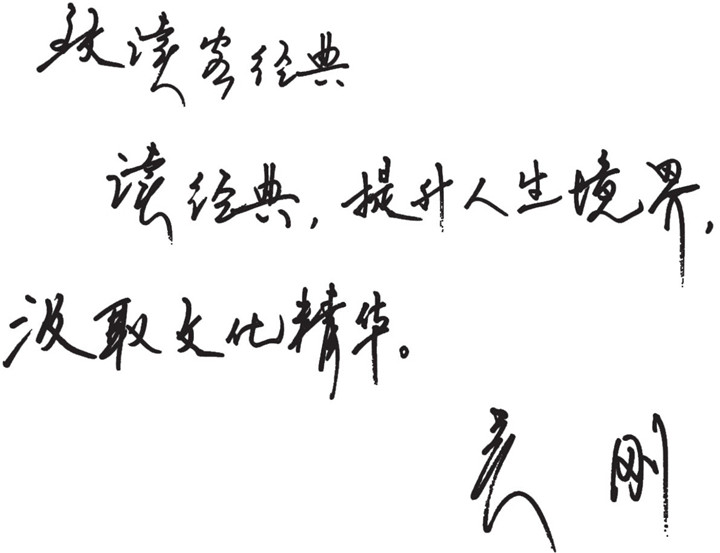 致读客经典
读经典，提升人生境界，
汲取文化精华。
袁刚